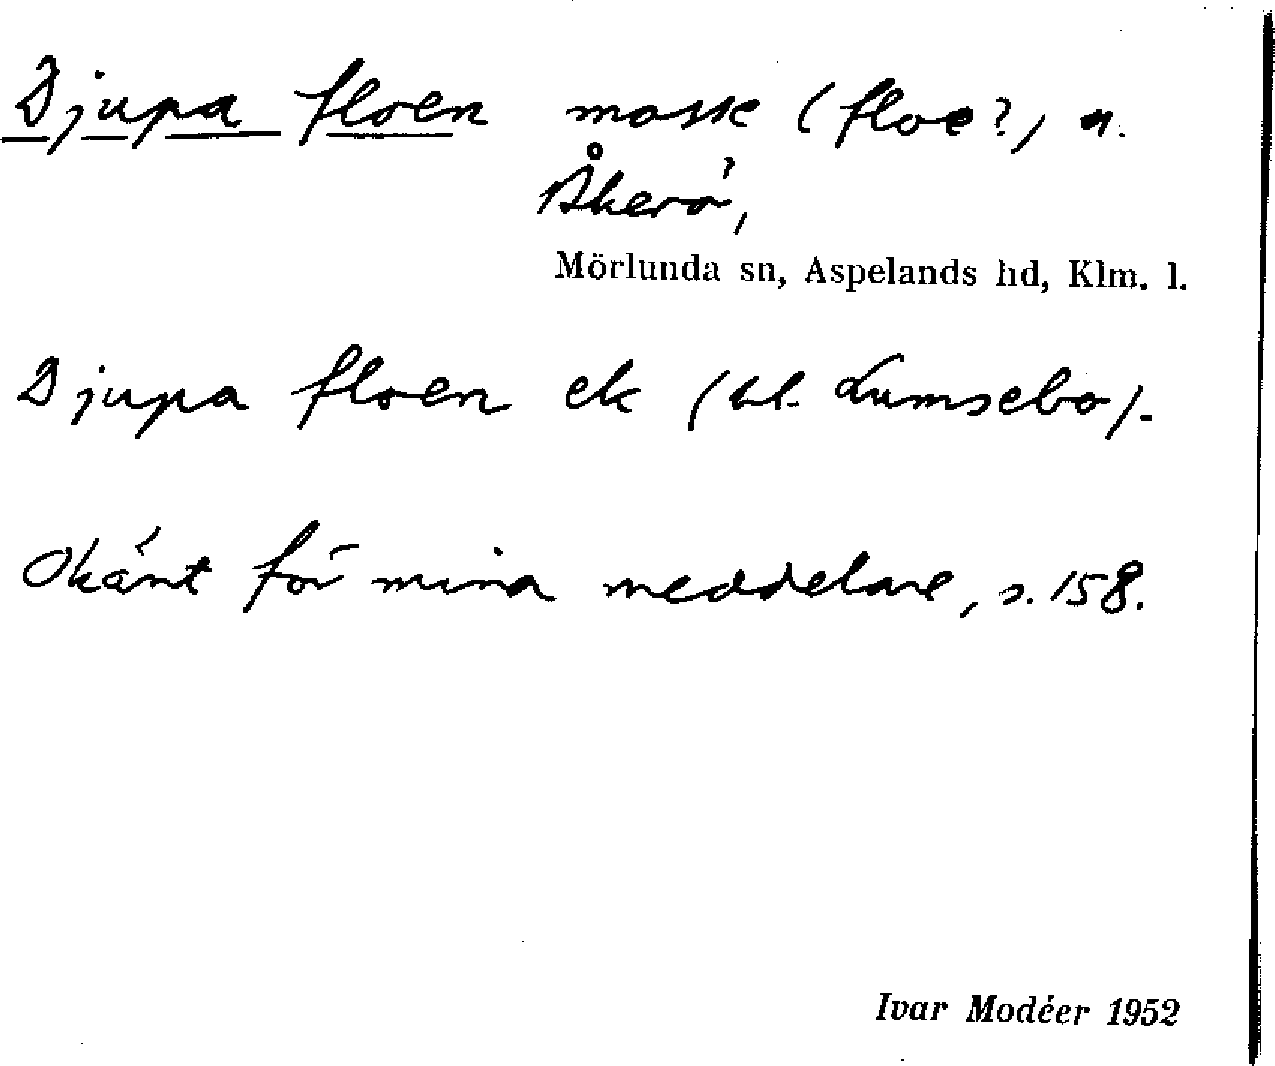 Djupa floen mosse (floe?) n.
Åkerö,
Mörlunda sn, Aspelands hd, Klm. l.
Djupa floen ek (bl. Lumsebo).
Okänt för mina meddelare, s. 158.
Ivar Modéer 1952